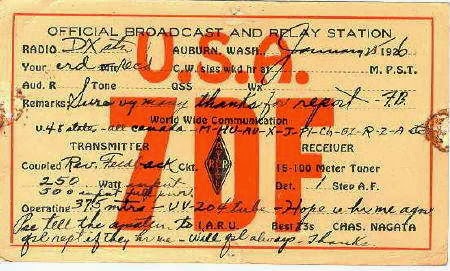 OFFICIAL BROADCAST AND RELAY STATION
RADIO DX AUBURN, WASH. January 1926
Your crd recd C.W. sigs wkd hr at M. P.S.T.
Aud. R Tone QSS Wx
Remarks: Sure vy many thanks for report - F.B.
U.S.A.
7DF
World Wide Communication
u. 48 states - all canada - M-HU-AU-X-J-PI-Ch-BI-R-Z-A
TRANSMITTER RECEIVER
Coupled Rev. Feedback Ckt. 15-100 Meter Tuner
250 Watt input Det. 1 Step A.F.
300 input full wave
Operating 37.5 mtrs - UV-204 tube - Hope u hr me agn
Pse tell the to I.A.R.U. Best 73s CHAS. NAGATA
qsl rept if they hr me - Will qsl always - Thanks